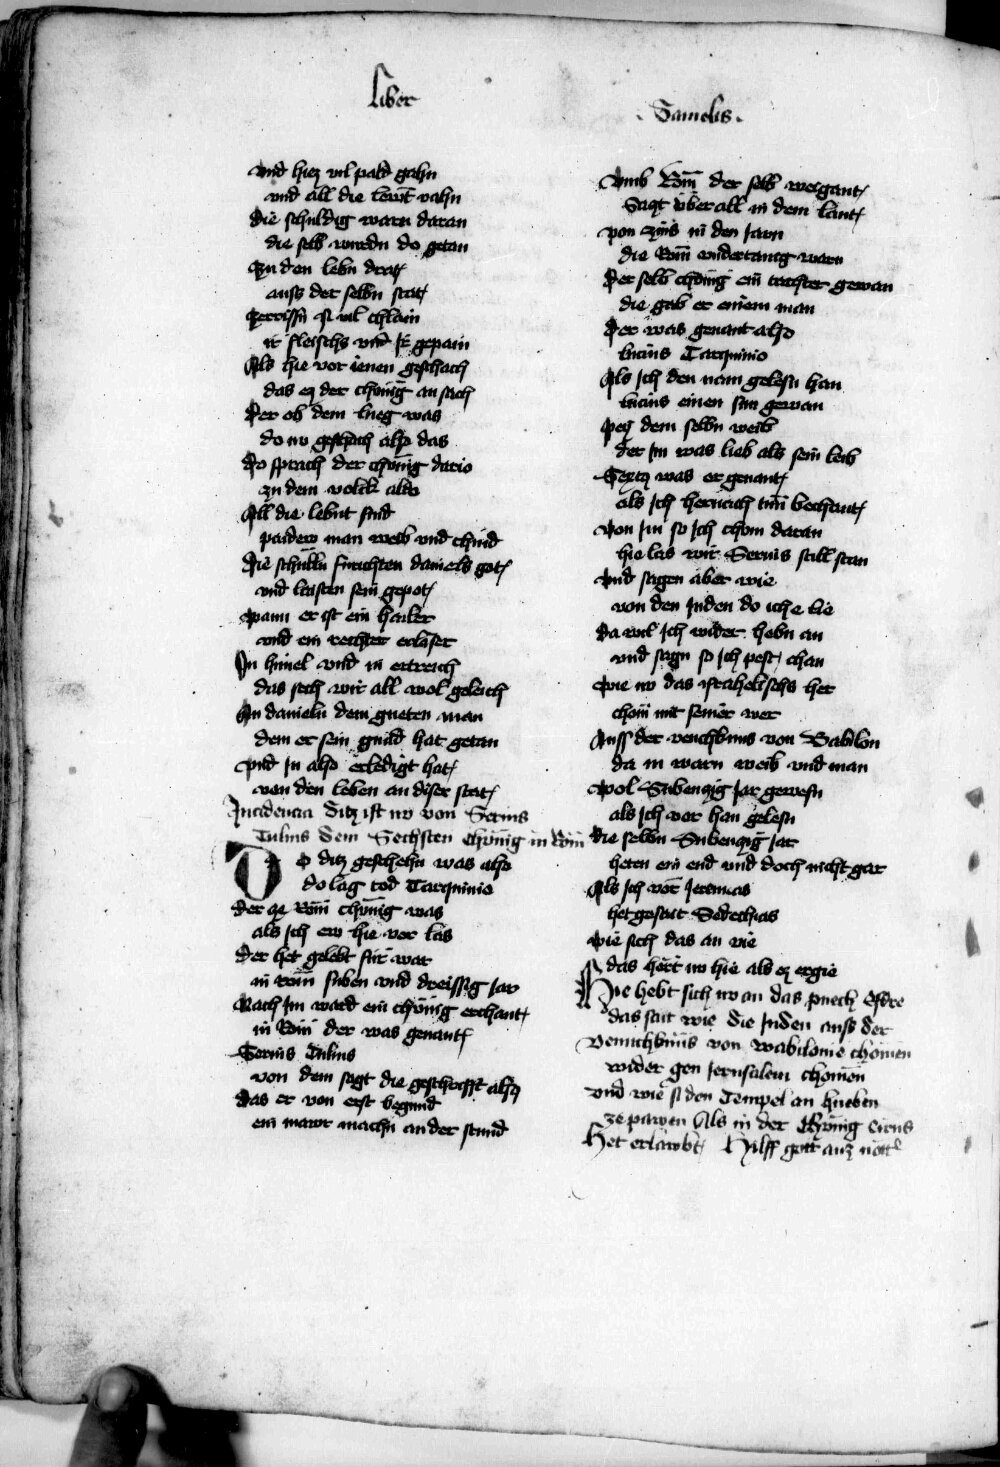 Liber
Samelis.
vnd hiez vil pald gahn
vnd all die lewt vahn
die schuldig warn daran
die selb wurdn do getan
Zu den lebn drat
auss der selbn stat
Zerrissn si vil chlain
ir fleischs vnd ir gepain
Als hie vor ienen geschach
das ez der chünig an sach
Der ob dem lueg was
do nv geschach also das
do sprach der chünig dario
zu dem volck aldo
All die lebnt sind
paidew man weib vnd chind
die schulln furichten daniels got
vnd laisten sein gepot
wann er ist ein hailer
vnd ein rechter erlaser
In himel vnd in ertreich
das sech wir all wol geleich
An danieln dem gueten man
dem er sein gnad hat getan
vnd in also erledigt hat
von den leben an diser stat
Incidencia ditz ist nv von Seruis
Tulius dem Sechsten chünig in Rom
Do ditz geschehn was also
do lag tod Tarquinio
der ze Rom chünig was
als ich ew hie vor las
der het gelebt fur war
in Rom siben vnd dreissig iar
Nach im ward ein chünig erchant
in Rom der was genant
Seruis Tulius
von dem sagt die geschrifft also
das er von erst begund
ein mawr machn an der stund
vmb Rom der selb weigant
Sagt vber all in dem lant
von zins in den iarn
die Rom vndertanig warn
Der selb chünig ein tochter gewan
die gab er einem man
Der was genant also
lucius Tarquinio
Als ich den nam gelesn han
lucius einen sun gewan
Pey dem selbn weib
der im was lieb als sein leib
Sextz was er genant
als ich hernach tun bechant
von im so ich chom daran
hie las wir Seruis still stan
vnd sagen aber wie
von den Juden do ich e lie
Da wil ich wider hebn an
vnd sagn so ich pest chan
wie nv das israhelischs her
chom mit seiner wer
Auss der venchknus von Babilon
da in warn weib vnd man
wol Subenzig iar gewesn
als ich vor han gelesn
die selbn Subenzig iar
heten ein end vnd doch nicht gar
Als ich vor Jeremias
het gesait Sedechias
wie sich das an vie
das hert nv hie als ez ergie
Hie hebt sich nv an das puech Esdre
das sait wie die Juden auss der
venuchknus von wabilonie chomen
wider gen Jerusalem chomen
vnd wie si den Tempel an hueben
ze pawen Als in der chünig Cirus
Het erlawbt Hilff gott auz nött